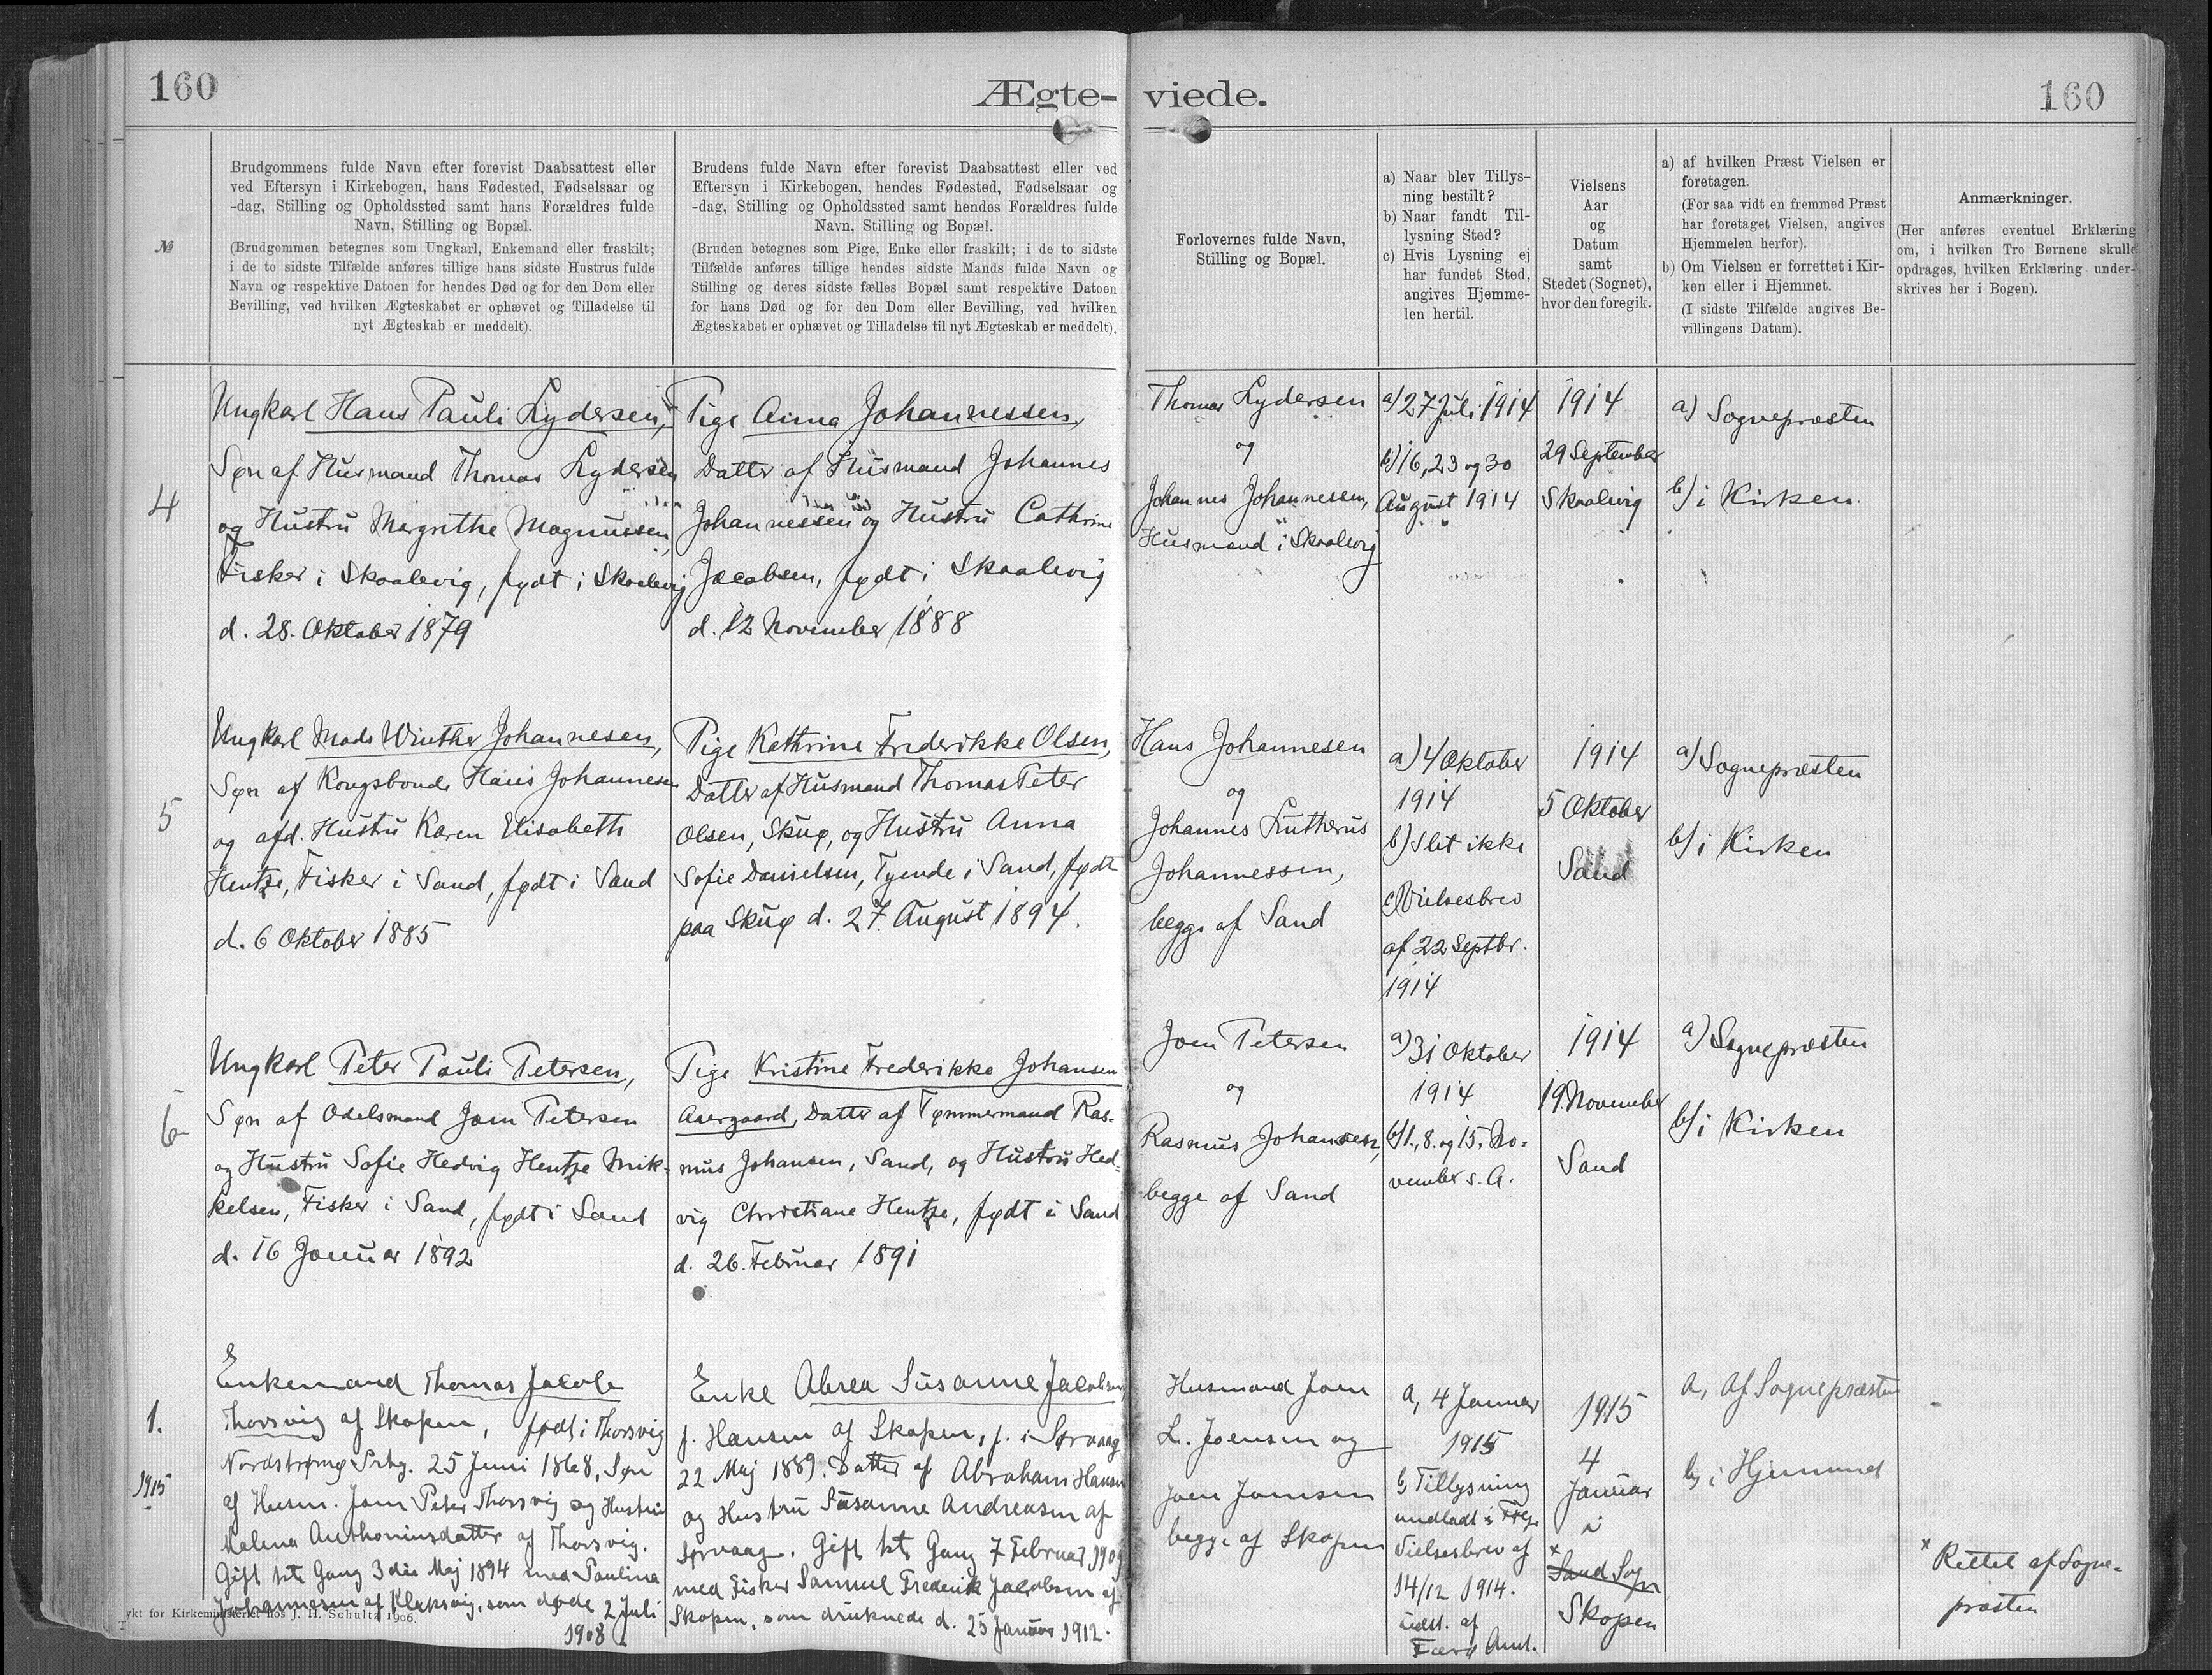 160
Ægte-
viede.
160
№
Brudgommens fulde Navn efter forevist Daabsattest eller
ved Eftersyn i Kirkebogen, hans Fødested, Fødselsaar og
-dag, Stilling og Opholdssted samt hans Forældres fulde
Navn, Stilling og Bopæl.
(Brudgommen betegnes som Ungkarl, Enkemand eller fraskilt;
i de to sidste Tilfælde anføres tillige hans sidste Hustrus fulde
Navn og respektive Datoen for hendes Død og for den Dom eller
Bevilling, ved hvilken Ægteskabet er ophævet og Tilladelse til
nyt Ægteskab er meddelt).
Brudens fulde Navn efter forevist Daabsattest eller ved
Eftersyn i Kirkebogen, hendes Fødested, Fødselsaar og
-dag, Stilling og Opholdssted samt hendes Forældres fulde
Navn, Stilling og Bopæl.
(Bruden betegnes som Pige, Enke eller fraskilt; i de to sidste
Tilfælde anføres tillige hendes sidste Mands fulde Navn og
Stilling og deres sidste fælles Bopæl samt respektive Datoen
for hans Død og for den Dom eller Bevilling, ved hvilken
Ægteskabet er ophævet og Tilladelse til nyt Ægteskab er meddelt).
Forlovernes fulde Navn,
Stilling og Bopæl.
a) Naar blev Tillys-
ning bestilt?
b) Naar fandt Til-
lysning Sted?
c) Hvis Lysning ej
har fundet Sted,
angives Hjemme-
len hertil.
Vielsens
Aar
og
Datum
samt
Stedet (Sognet),
hvor den foregik.
a) af hvilken Præst Vielsen er
foretagen.
(For saa vidt en fremmed Præst
har foretaget Vielsen, angives
Hjemmelen herfor).
b) Om Vielsen er forrettet i Kir-
ken eller i Hjemmet.
(I sidste Tilfælde angives Be-
villingens Datum).
Anmærkninger.
(Her anføres eventuel Erklæring
om, i hvilken Tro Børnene skulle
opdrages, hvilken Erklæring under-
skrives her i Bogen).
4
Ungkarl Hans Pauli Lydersen,
Søn af Husmand Thomas Lydersen
og Hustru Margrethe Magnussen,
Fisker i Skaalevig, født i Skaalevig
d. 28. Oktober 1879
Pige Anna Johannessen,
Datter af Husmand Johannes
Johannessen og Hustru Cathrine
Jacobsen, født i Skaalevig
d. 12 November 1888
Thomas Lydersen
og
Johannes Johannessen,
Husmand i Skaalevig
a) 27 Juli 1914
b) 16, 23 og 30
August 1914
1914
29 September
Skaalevig
a) Sognepræsten
b) i Kirken.
5
Ungkarl Mads Winther Johannesen,
Søn af Kongsbonde Hans Johannesen
og afd. Hustru Karen Elisabeth
Hentze, Fisker i Sand, født i Sand
d. 6 Oktober 1885
Pige Kathrine Frederikke Olsen,
Datter af Husmand Thomas Peter
Olsen, Skuø, og Hustru Anna
Sofie Danielsen, Tyende i Sand, født
paa Skuø d. 27. August 1894.
Hans Johannesen
og
Johannes Lutherus
Johannessen,
begge af Sand
a) 4 Oktober
1914
b) Slet ikke
c) Vielsesbrev
af 22 Septbr.
1914
1914
5 Oktober
Sand
a) Sognepræsten
b) i Kirken
6
Ungkarl Peter Pauli Petersen,
Søn af Odelsmand Joen Petersen
og Hustru Sofie Hedvig Hentze Mik-
kelsen, Fisker i Sand, født i Sand
d. 16 Januar 1892
Pige Kristine Frederikke Johansen
Aaergaard, Datter af Tømmermand Ras-
mus Johansen, Sand, og Hustru Hed-
vig Christiane Hentze, født i Sand
d. 26. Februar 1891
Joen Petersen
og
Rasmus Johansen,
begge af Sand
a) 31 Oktober
1914
b) 1., 8. og 15. No-
vember s. A.
1914
19. November
Sand
a) Sognepræsten
b) i Kirken
1.
1915
Enkemand Thomas Jacob
Thorsvig af Skopen, født i Thorsvig
Nordstrømø Srtg. 25 Juni 1868, Søn
af Husm. Joen Peter Thorsvig og Hustru
Malena Anthoniusdatter af Thorsvig.
Gift 1ste Gang 3die Maj 1894 med Pauline
Johannesen af Klaksvig, som døde 2 Juli
1908
Enke Abrea Susanne Jacobsen,
f. Hansen af Skopen, f. i Sørvaag
22 Maj 1889. Datter af Abraham Hansen
og Hustru Susanne Andreasen af
Sørvaag. Gift 1ste Gang 7 Februar 1909
med Fisker Samuel Frederik Jacobsen af
Skopen, som druknede d. 25 Januar 1912.
Husmand Joen
L. Joensen og
Joen Joensen
begge af Skopen
a, 4 Januar
1915
b, Tillysning
undladt i Flg.
Vielsesbrev af
14/12 1914.
udst. af
Færø Amt.
1915
4
Januar
i
x
Sand Sogn
Skopen
a, af Sognepræsten
b, i Hjemmet
x Rettet af Sogne-
præsten
Tykt for Kirkeministeriet hos J. H. Schultz 1906.